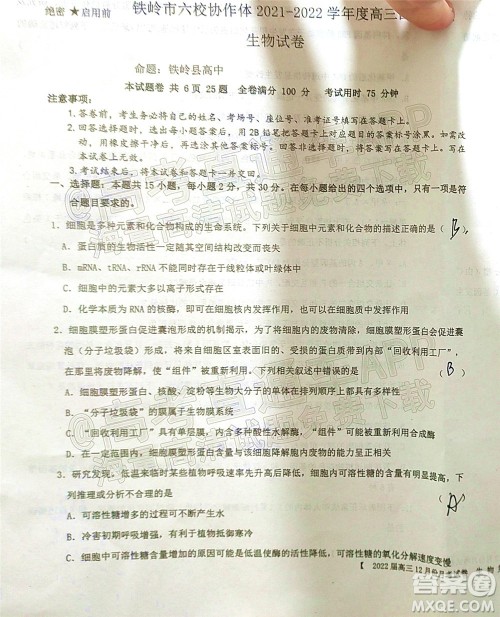 绝密 ★启用前
铁岭市六校协作体 2021-2022 学年度高三
生物试卷
命题：铁岭县高中
本试题卷 共 6 页 25 题 全卷满分 100 分 考试用时 75 分钟
注意事项：
1. 答卷前，考生务必将自己的姓名、考场号、座位号、准考证号填写在答题卡上。
2. 回答选择题时，选出每小题答案后，用 2B 铅笔把答题卡对应题目的答案标号涂黑。如需改
动，用橡皮擦干净后，再选涂其他答案标号。回答非选择题时，将答案写在答题卡上，写在
本试卷上无效。
3. 考试结束后，将答题卡一片交回。
一、选择题：本题共 15 小题，每小题 2 分，共 30 分。在每小题给出的四个选项中，只有一项是符
合题目要求的。
1. 细胞是多种元素和化合物构成的生命系统。下列关于细胞中的元素和化合物的描述正确的是（ B ）
A. 蛋白质的生物活性一定随其空间结构改变而丧失
B. mRNA、tRNA、rRNA 不可能同时存在于线粒体或叶绿体中
C. 细胞中的元素大多以离子形式存在
D. 化学本质为 RNA 的核酶，即可在细胞核内发挥作用，也可以在细胞质中发挥作用
2. 细胞膜塑形蛋白促进囊泡形成的机制揭示，为了将细胞内的废物清除，细胞膜塑形蛋白会促进囊
泡（分子垃圾袋）形成，将来自细胞区室表面旧的或受损的蛋白质带到内部“回收利用工厂”，
在那里将废物降解，使“组件”被重新利用。下列相关叙述中错误的是（ B ）
A. 细胞膜塑形蛋白、核酸、淀粉等生物大分子的单体在排列顺序上都具有多样性
B. “分子垃圾袋”的膜属于生物膜系统
C. “回收利用工厂”可能是溶酶体，内含多种酸性水解酶，“组件”可用于细胞内有机物合成酶
D. 细胞膜塑形蛋白在合成过程中，场所由核糖体提供，动力可由线粒体提供
3. 研究发现，低温时某些植物呼吸速率先升高后降低，细胞内可溶性糖的含量有明显提高。下
列推理或分析不合理的是（ A ）
A. 可溶性糖增多的过程可不断产生水
B. 冷害初期呼吸增强，有利于植物抵御寒冷
C. 可溶性糖含量增加的原因可能是低温使酶活性降低，可溶性糖的氧化分解速度变慢
【 2022 届高三 12 月份月考试卷 生物
答案圈
MXQE.COM